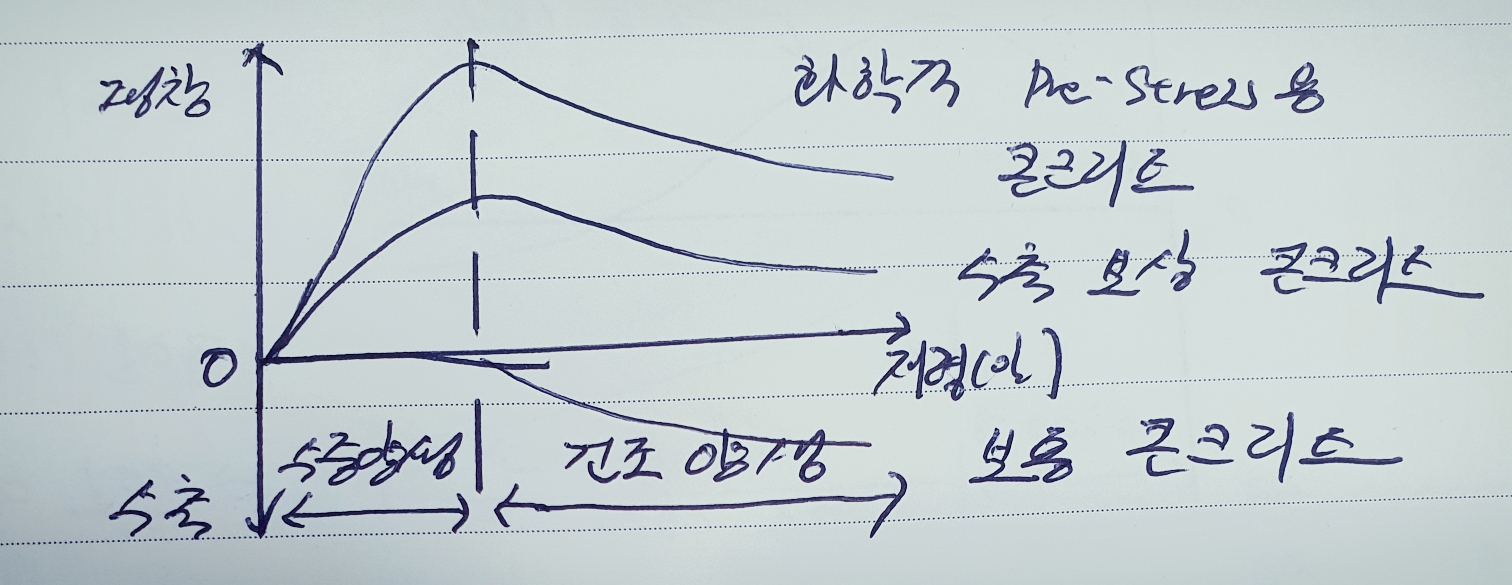 팽창
화학적 Pre-Stress 용
콘크리트
수축 보상 콘크리트
0
재령(일)
수중양생
건조 양생
보통 콘크리트
수축